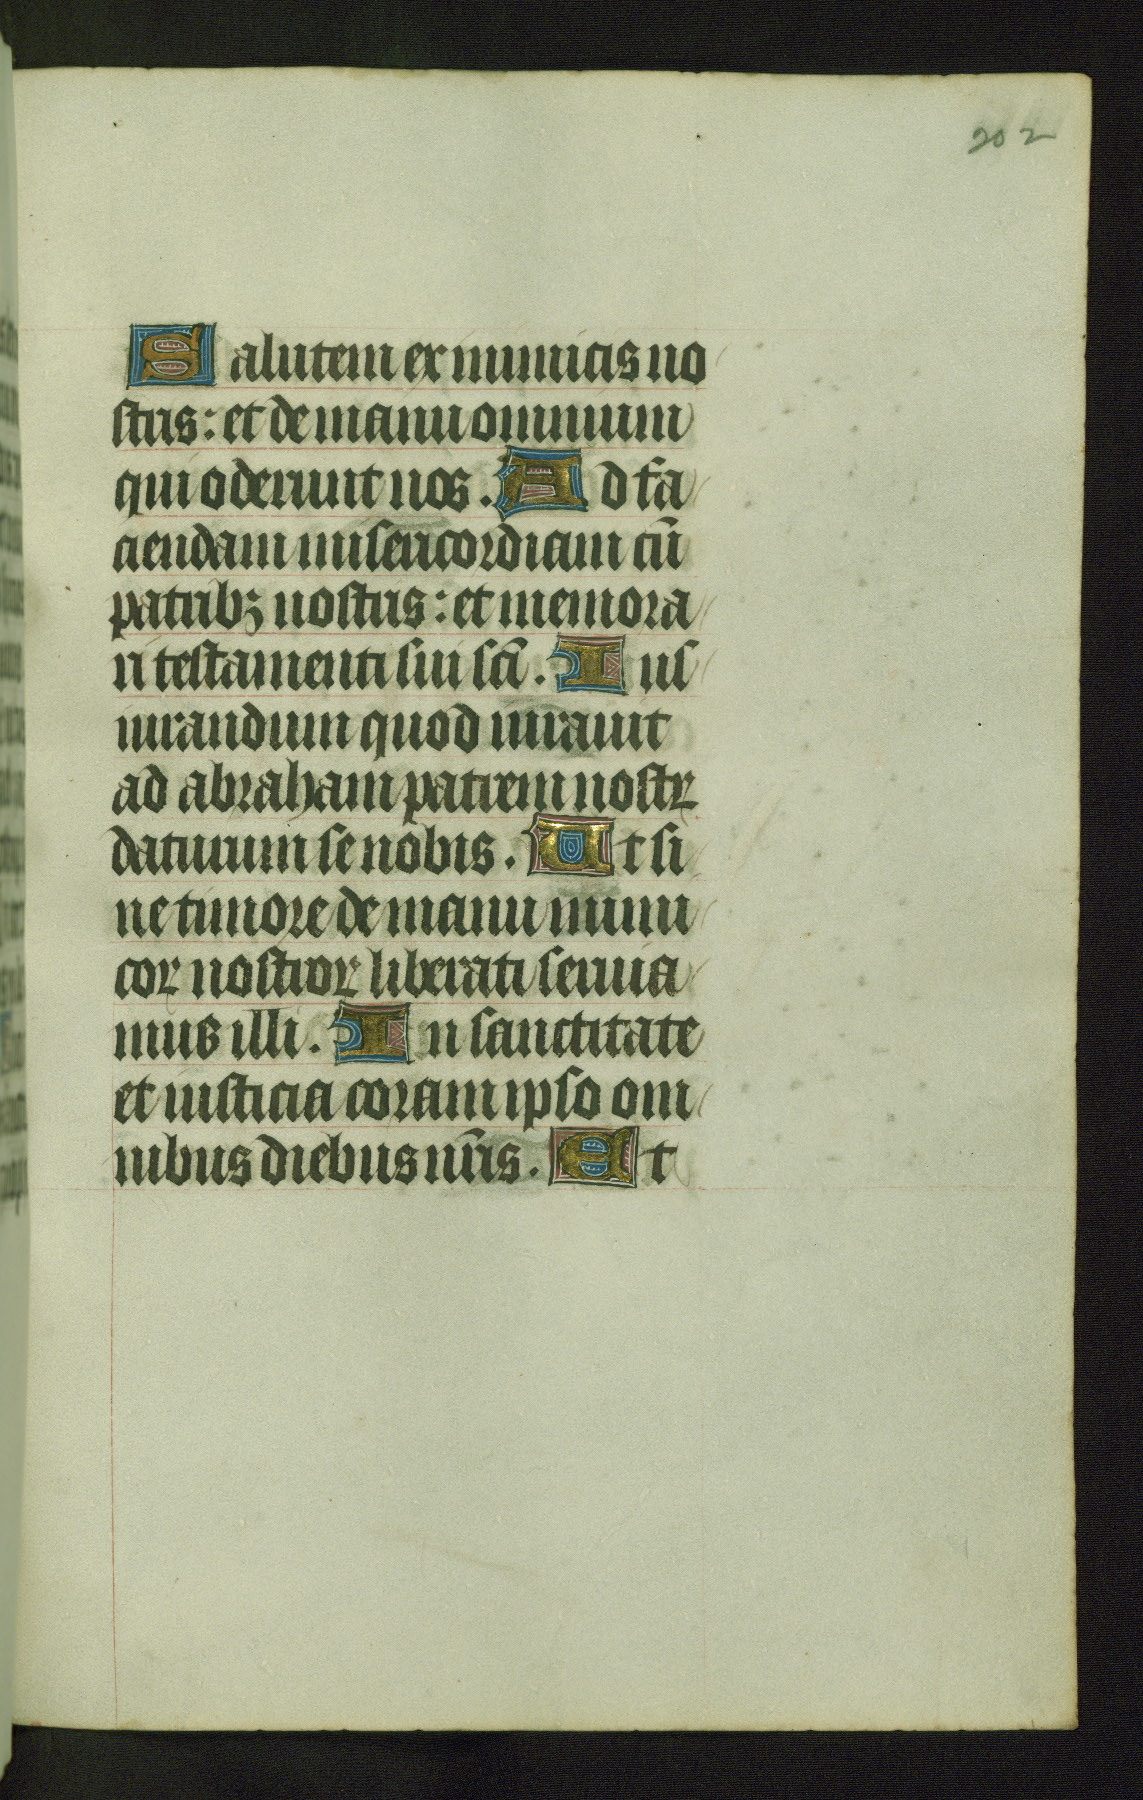 202
Salutem ex inimicis no
stris: et de manu omnium
qui oderunt nos. Ad fa
ciendam misericordiam cū
patribꝫ nostris: et memora
ri testamenti sui scī. Ius
iurandum quod iurauit
ad abraham patrem nostrꝝ
daturum se nobis. Ut si
ne timore de manu inimi
coꝝ nostroꝝ liberati seruia
mus illi. In sanctitate
et iusticia coram ipso om
nibus diebus nr̄is. Et